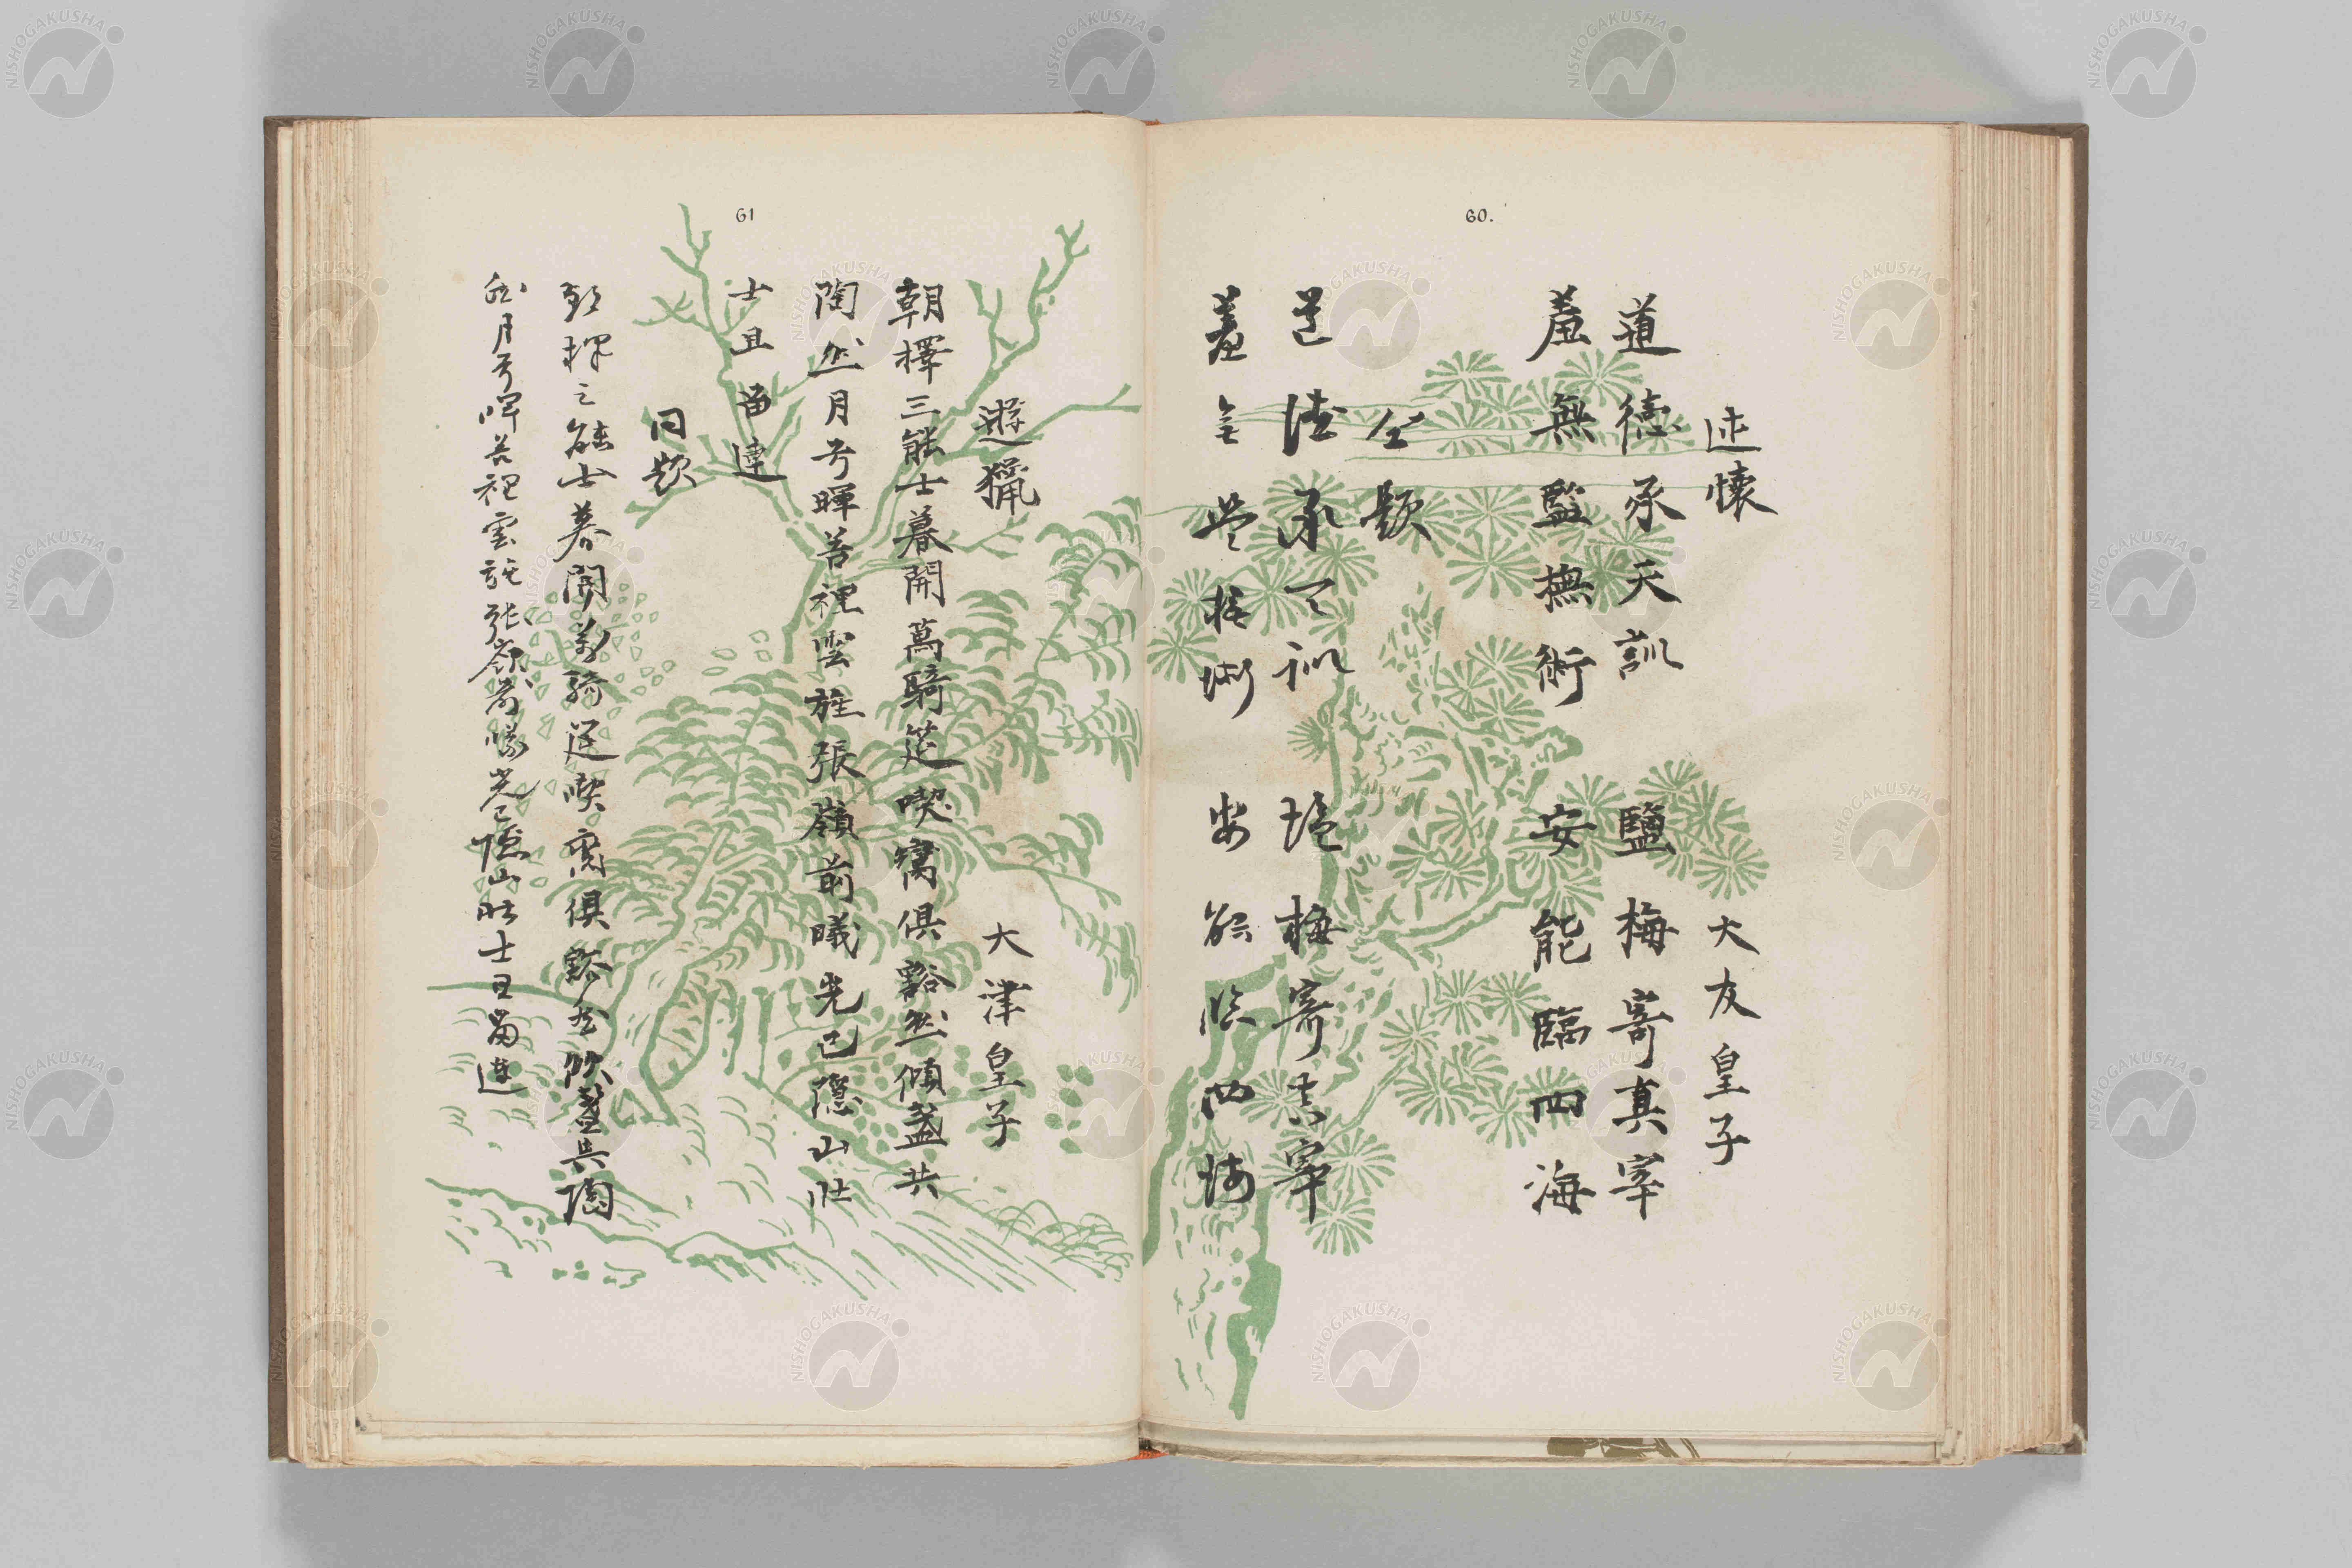 60.
述懷 大友皇子
道德承天訓 鹽梅寄真宰
羞無監撫術 安能臨四海
仝題
道德承天訓 塩梅寄真宰
羞無監撫術 安能臨四海
61
遊獵 大津皇子
朝擇三能士暮開萬騎筵喫臠俱豁然傾盞共
陶然月弓暉谷裡雲旌張嶺前曦光已隱山壯
士且留連
同題
朝擇三能士暮開萬騎筵喫臠俱豁然傾盞共陶
然月弓暉谷裡雲旌張嶺前曦光已隱山壯士且留連
NISHOGAKUSHA